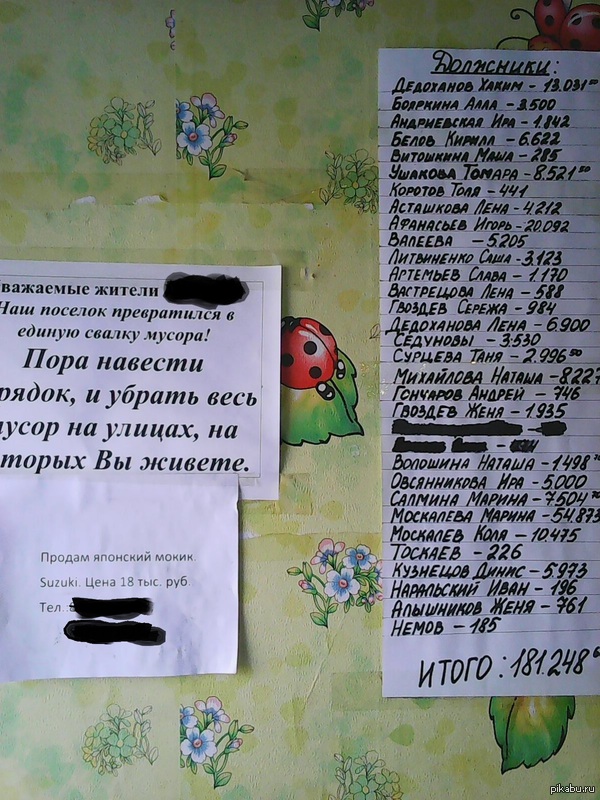 уважаемые жители
Наш поселок превратился в
единую свалку мусора!
Пора навести
рядок, и убрать весь
мусор на улицах, на
торых Вы живете.
Продам японский мокик
Suzuki. Цена 18 тыс. руб.
Тел.
Должники:
Дедоханов Хаким - 13.031⁰⁰
Бояркина Алла - 3.500
Андриевская Ира - 1.842
Белов Кирилл - 6.622
Витошкина Маша - 285
Ушакова Томара - 8.521⁵⁰
Коротов Толя - 441
Асташкова Лена - 4.212
Афанасьев Игорь - 20.092
Валеева - 5.205
Литвиненко Саша - 3.123
Артемьев Слава - 1.170
Вастрецова Лена - 588
Гвоздев Сережа - 984
Дедоханова Лена - 6.900
Седуновы - 3.530
Сурцева Таня - 2.996⁵⁰
Михайлова Наташа - 8.227
Гончаров Андрей - 746
Гвоздев Женя - 1935
Волошина Наташа - 1.498
Овсянникова Ира - 5.000
Салмина Марина - 7.504
Москалева Марина - 54.873
Москалев Коля - 10.475
Тоскаев - 226
Кузнецов Динис - 5.973
Наральский Иван - 196
Алышников Женя - 761
Немов - 185
Итого: 181.248
pikabu.ru